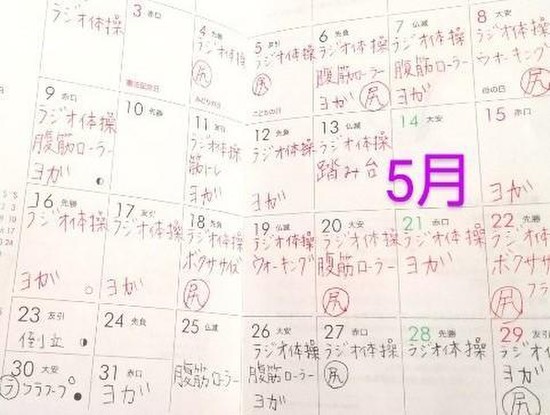 ラジオ体操
3 赤口
憲法記念日
4 先勝
ラジオ体操
尻
みどりの日
5 友引
ラジオ体操
尻
こどもの日
6 先負
ラジオ体操
腹筋ローラー
ヨガ 尻
7 仏滅
ラジオ体操
腹筋ローラー
ヨガ
8 大安
ラジオ体操
ウォーキング
尻
母の日
9 赤口
ラジオ体操
腹筋ローラー
ヨガ
10 先勝
11 友引
ラジオ体操
筋トレ
ヨガ
12 先負
ラジオ体操
ヨガ
13 仏滅
ラジオ体操
踏み台
14 大安
5月
15 赤口
ヨガ
16 先勝
ラジオ体操
ヨガ
17 友引
ラジオ体操
ヨガ
18 先負
ラジオ体操
ボクササイズ
尻
19 仏滅
ラジオ体操
ウォーキング
20 大安
ラジオ体操
腹筋ローラー
尻
21 赤口
ラジオ体操
ヨガ
22 先勝
ラジオ体操
ボクササ
尻 フラ
23 友引
倒立
24 先負
25 仏滅
腹筋ローラー
26 大安
ラジオ体操
腹筋ローラー
ヨガ
27 赤口
ラジオ体操
尻
28 先勝
ラジオ体操
29 友引
ラジオ体操
ヨガ
尻
30 大安
ラ フラフープ
31 赤口
ヨガ